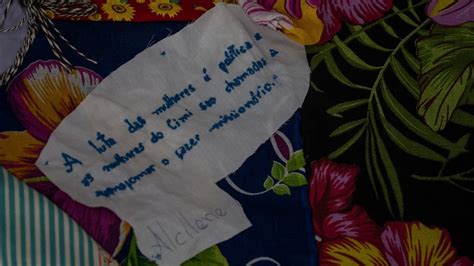 "A luta das mulheres é política e
as mulheres do Cimi são chamadas a
transformar o fazer missionário."
Alcilene